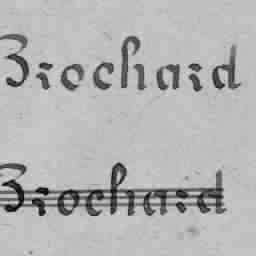 Brochard
Brochard